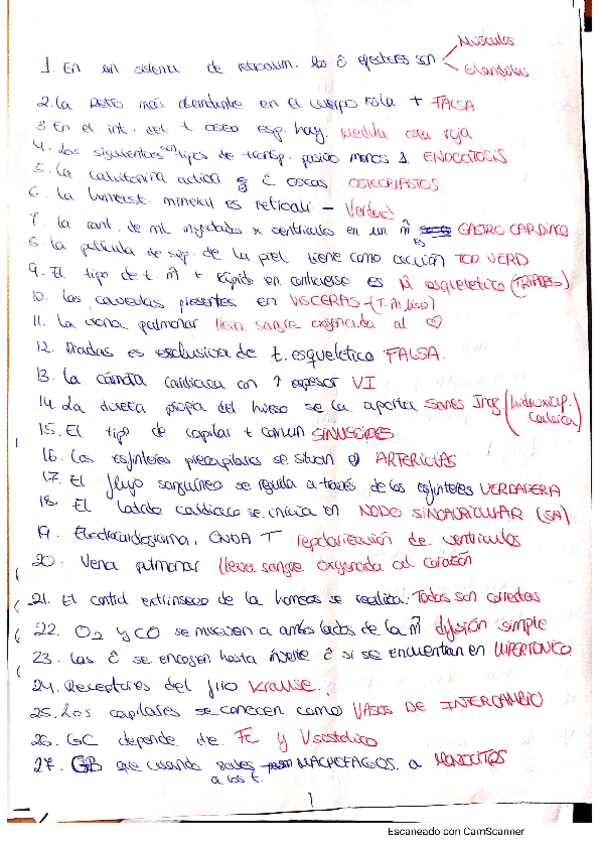 1. En un sistema de retroalim. las ĉ efectoras son Músculos
Glándulas
2. La más abundante en el cuerpo FALSA
3 En el int. del t oseo esp. hay. Medula osea roja
4. Los siguientes son tipos de transp. pasivo menos 1. ENDOCITOSIS
5. La calcitonina actúa ĉ oseas OSTEOBLASTOS
6. La homeost. mineral es retroali - Verdad
7. La cant. de ml eyectados x ventriculos en un m̂ GASTO CARDIACO
8. La película de sup. de la piel tiene como acción TOD VERD
9. El tipo de t. m̂ + rápido en contraerse es M̂ esqueletico (TRIADAS)
10. Las caveolas presentes en VISCERAS - (T. m. liso)
11. La vena pulmonar lleva sangre oxigenada al ♡
12. Diadas es exclusiva de t. esqueletico FALSA.
13. La cámara cardiaca con ↑ espesor VI
14. La dureza propia del hueso se la aporta Sales Ing (hidroxiap. Calcica)
15. El tipo de capilar + común SINUSOIDES
16. Los esfinteres precapilares se situan ARTERIOLAS
17. El flujo sanguíneo se regula a través de los esfinteres VERDADERA
18. El latido cardiaco se inicia en NODO SINOAURICULAR (SA)
19. Electrocardiograma, ONDA T repolarización de ventriculos
20. Vena pulmonar lleva sangre oxigenada al corazón
21. El control extrínseco de la homeos se realiza: Todas son correctas
22. O2 y CO se mueven a ambos lados de la m̂ difusión simple
23. Las ĉ se encogen hasta ĉ si se encuentran en HIPERTONICO
24. Receptores del frio Krause.
25. Los capilares se conocen como VASOS DE INTERCAMBIO
26. GC depende de FC y V sistolico
27. GB que cuando a MACROFAGOS. a MONOCITOS
a los t.
1
Escaneado con CamScanner